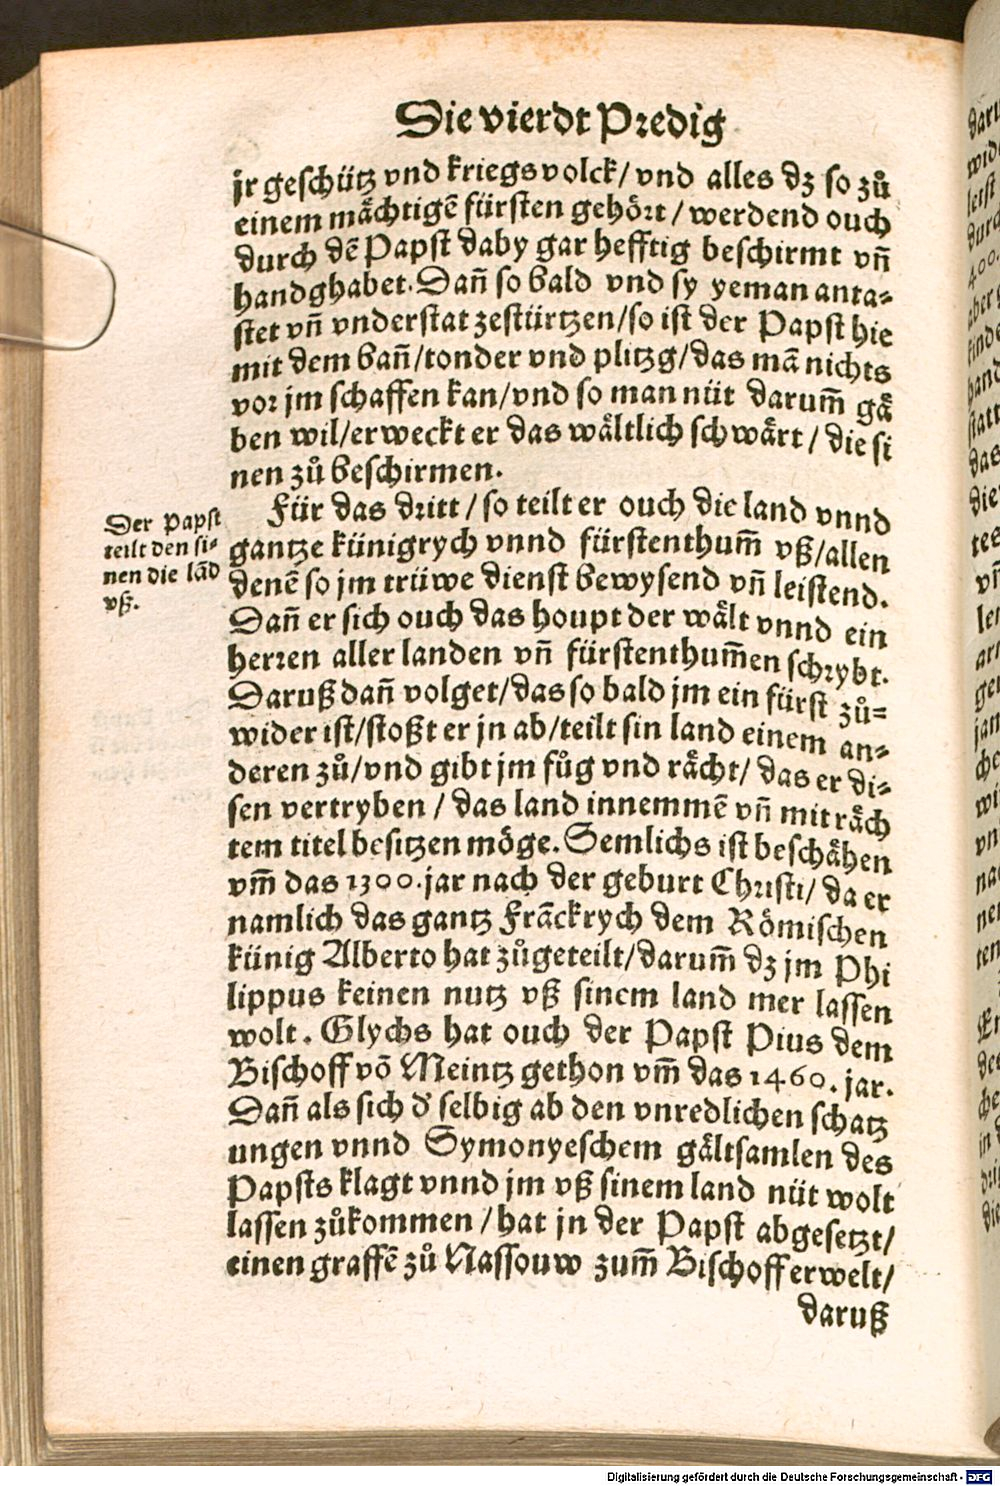 Die vierdt Predig
jr geschütz vnd kriegsvolck/ vnd alles dz so zů
einem mächtigē fürsten gehört / werdend ouch
durch dē Papst daby gar hefftig beschirmt vñ
handghabet. Dañ so bald vnd sy yeman anta⸗
stet vñ vnderstat zestürtzen/so ist der Papst hie
mit dem bañ/tonder vnd plitzg/das mā nichts
vor jm schaffen kan/vnd so man nüt darum̄ gä
ben wil/erweckt er das wältlich schwärt/ die si
nen zů beschirmen.
Für das dritt / so teilt er ouch die land vnnd
gantze künigrych vnnd fürstenthum̄ vß/allen
denē so jm trüwe dienst bewysend vñ leistend.
Dañ er sich ouch das houpt der wält vnnd ein
herren aller landen vñ fürstenthum̄en schrybt.
Daruß dañ volget/das so bald jm ein fürst zů⸗
wider ist/stoßt er jn ab/teilt sin land einem an⸗
deren zů/vnd gibt jm fůg vnd rächt/ das er di⸗
sen vertryben / das land innemmē vñ mit räch
tem titel besitzen möge. Semlichs ist beschähen
vm̄ das 1300. jar nach der geburt Christi/ da er
namlich das gantz Frāckrych dem Römischen
künig Alberto hat zůgeteilt/darum̄ dz jm Phi
lippus keinen nutz vß sinem land mer lassen
wolt. Glychs hat ouch der Papst Pius dem
Bischoff vō Meintz gethon vm̄ das 1460. jar.
Dañ als sich d' selbig ab den vnredlichen schatz
ungen vnnd Symonyeschem gältsamlen des
Papsts klagt vnnd jm vß sinem land nüt wolt
lassen zůkommen / hat jn der Papst abgesetzt/
einen graffē zů Nassouw zum̄ Bischoff erwelt/
daruß
Der Papst
teilt den si⸗
nen die lād
vß.
Digitalisierung gefördert durch die Deutsche Forschungsgemeinschaft - DFG